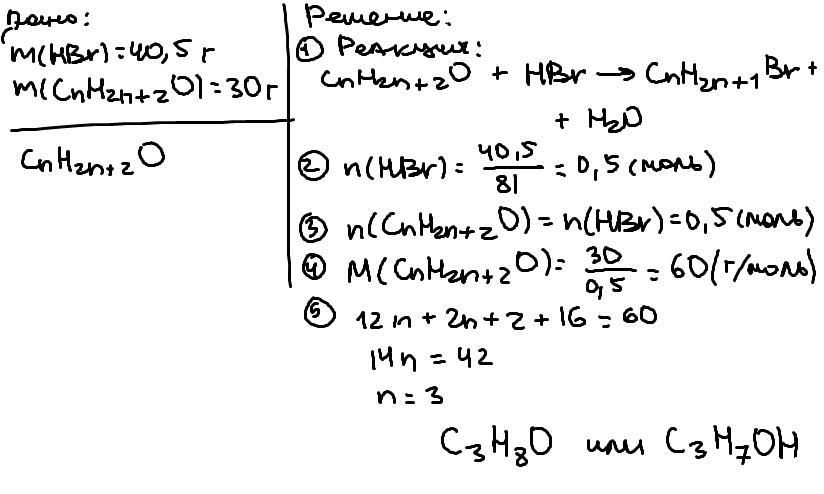 Дано:
m(HBr)=40,5 г
m(CnH2n+2O)=30г
CnH2n+2O
Решение:
① Реакция:
CnH2n+2O + HBr → CnH2n+1Br +
+ H2O
② n(HBr) = 40,5/81 = 0,5 (моль)
③ n(CnH2n+2O) = n(HBr) = 0,5 (моль)
④ M(CnH2n+2O) = 30/0,5 = 60 (г/моль)
⑤ 12n + 2n + 2 + 16 = 60
14n = 42
n = 3
C3H8O или C3H7OH